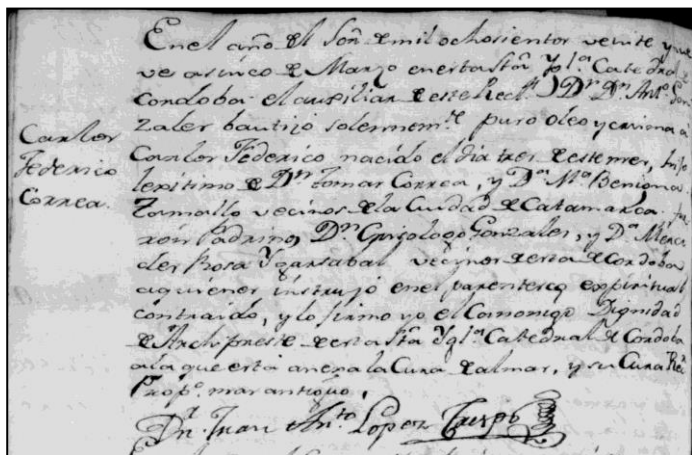 En el año del Sor. de mil ochosientos veinte y nue
ve a sinco de Marzo en esta Sta. Yglª. Catedral de
Cordoba el auxiliar de este Rect.l Dn. Dn. Anto. Gon
zales bautizo solemnem.te puso oleo y crisma á
Carlos Federico nacido el dia tres de este mes, hijo
lexitimo de Dn. Tomas Correa, y Dª. Mª. Benigna
Zamallo vecinos de la Ciudad de Catamarca. fue
ron Padrinos Dn. Grisologo Gonzales, y Dª. Merce
des Rosa Ygarsabal vecinos de esta de Cordoba
a quienes instrujó en el parentesco espiritual
contraido, y lo firmo yo el Comonigo Dignidad
de Archipreste de esta Sta. Yglª. Catedral de Cordoba
a la que esta anexa la Cura de almas, y su Cura Rec.
Prop.º mas antiguo,
Dn. Juan Anto. Lopez Crespo
Carlos
Federico
Correa.